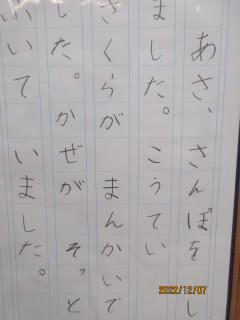 あさ、さんぽをし
ました。こうてい
さくらがまんかいで
した。かぜがそっと
ふいていました。
2022/12/07